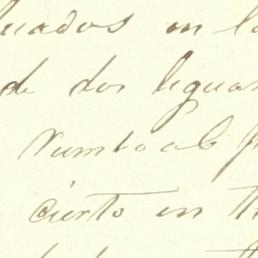 uados en la
de dos leguas
rumbo al
cierto en